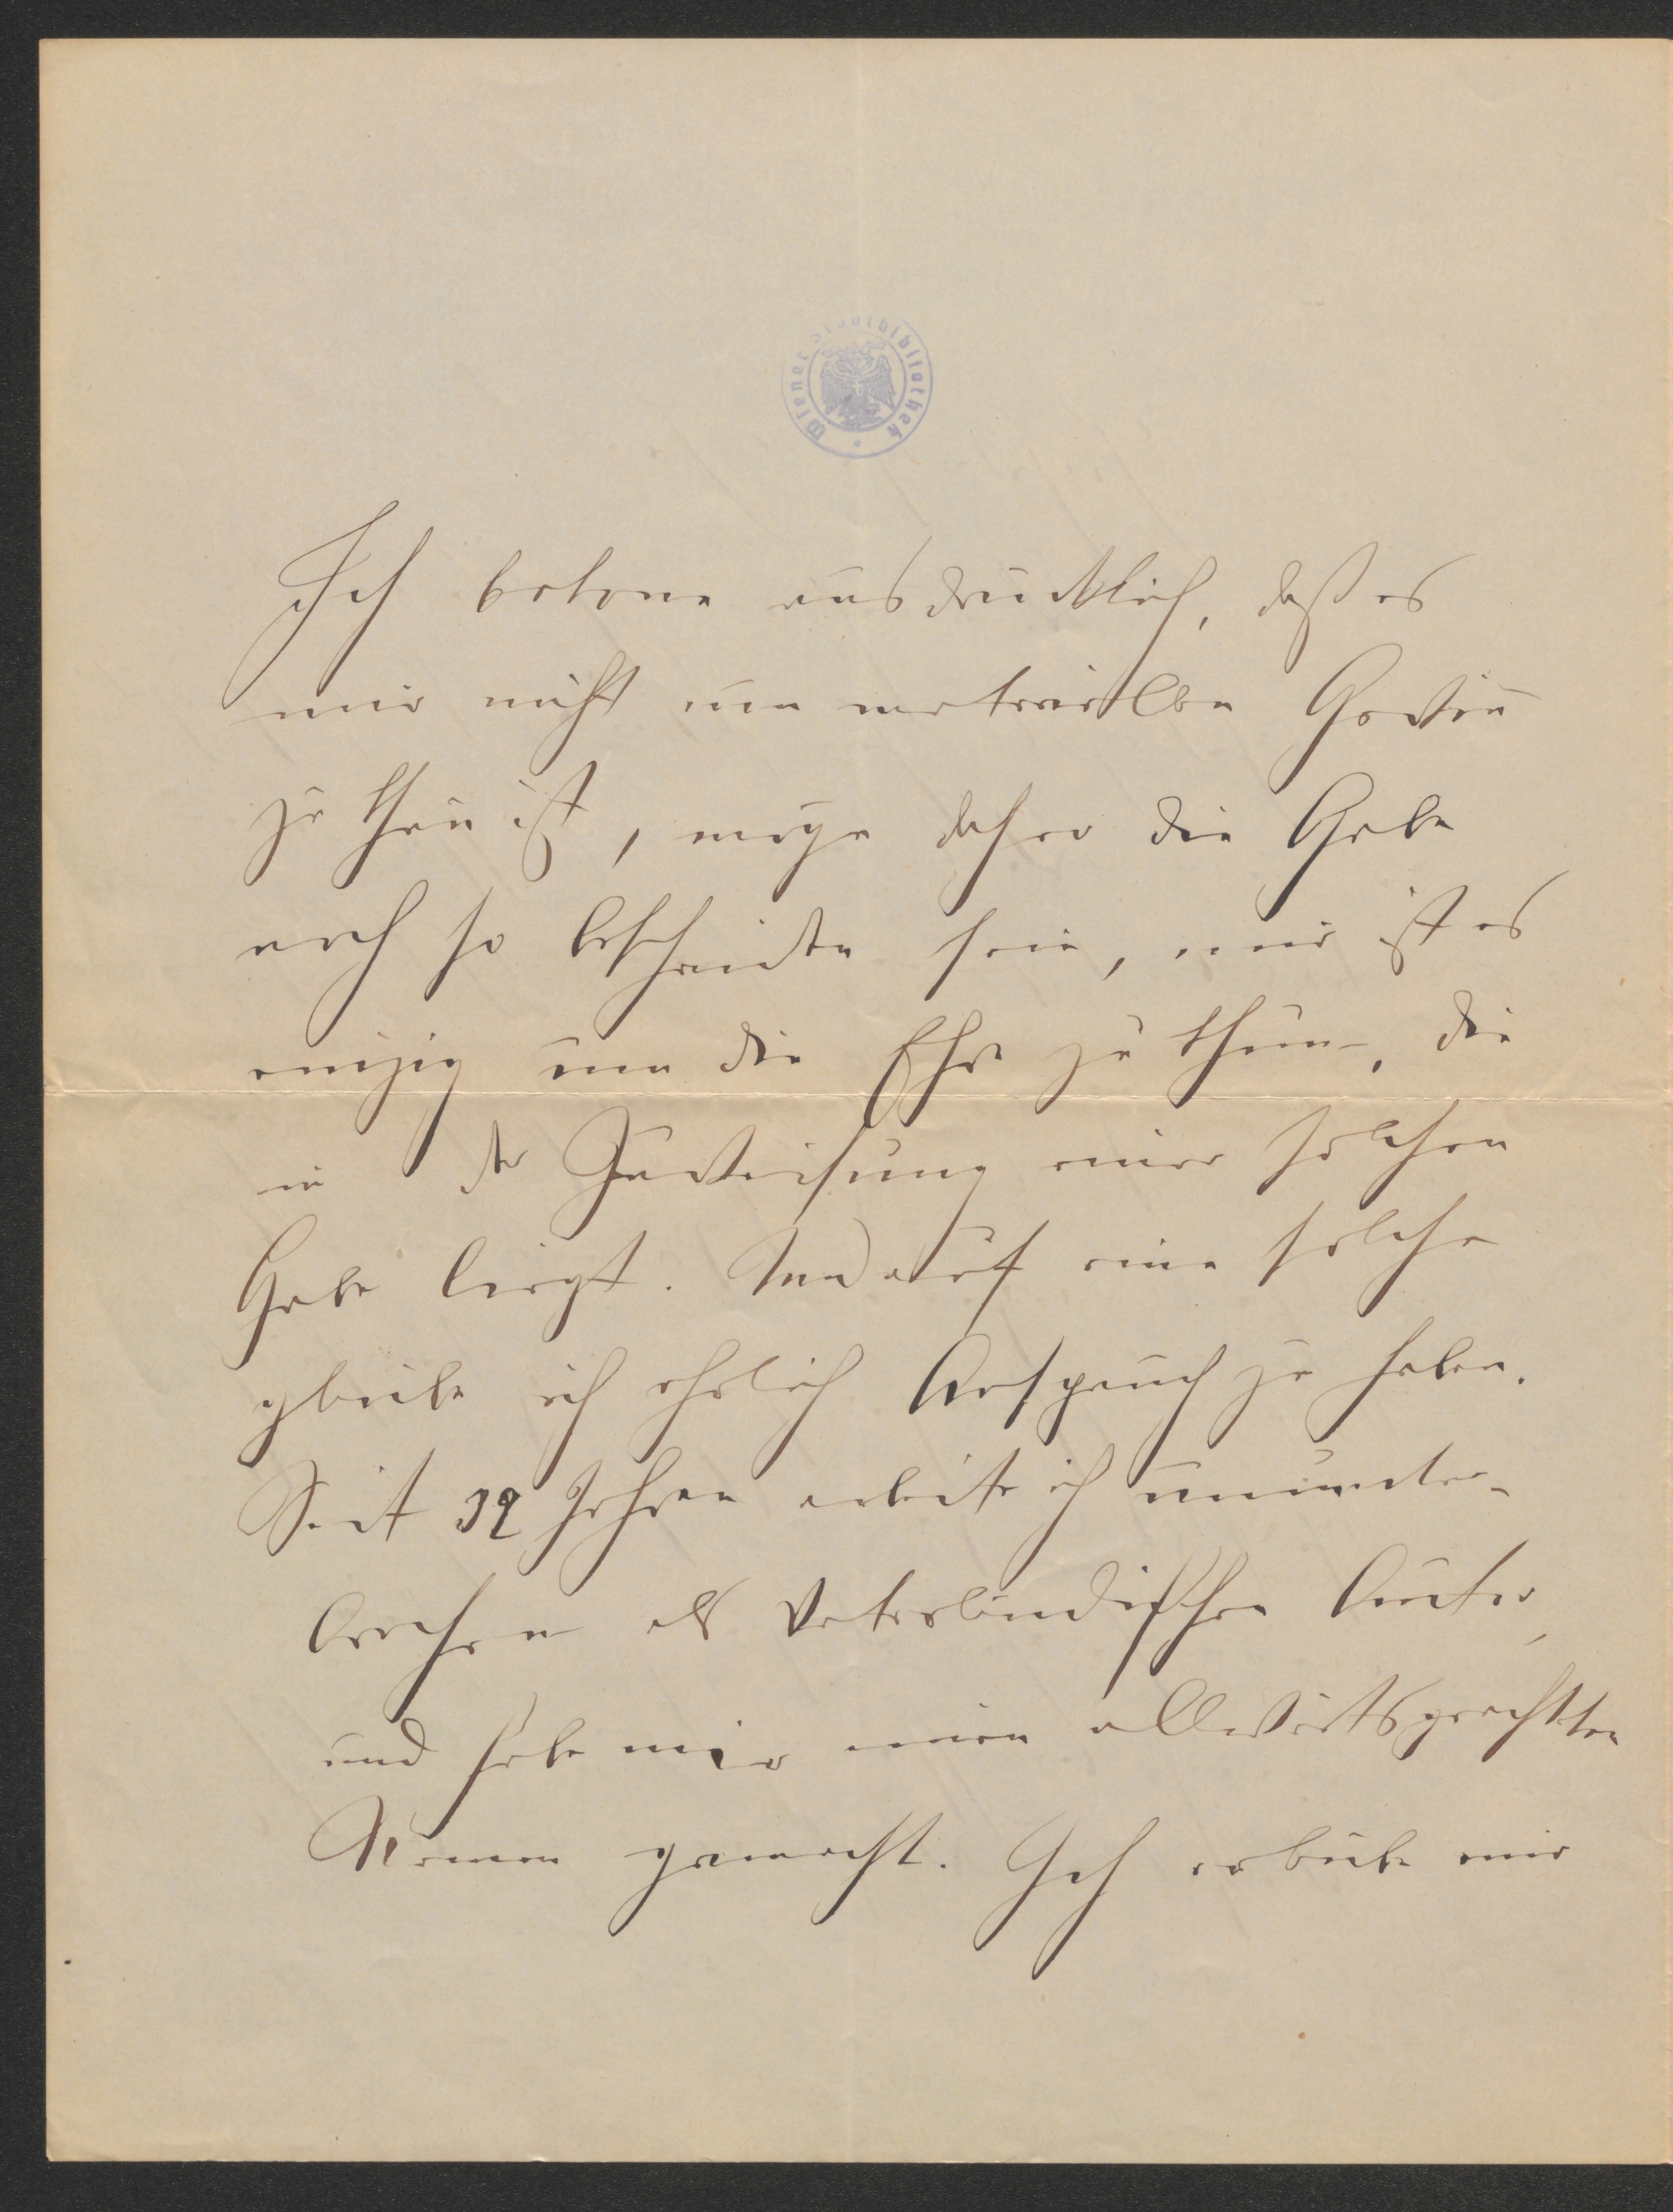 Wiener Stadtbibliothek
Ich betone ausdrücklich, daß es
mir nicht um materiellen Gewinn
zu thun ist, möge daher die Gabe
noch so bescheiden sein, mir ist es
einzig um die Ehre zu thun, die
in der Zuweisung einer solchen
Gabe liegt. Und auf eine solche
glaube ich ehrlich Anspruch zu haben.
Seit 32 Jahren arbeite ich ununter-
brochen als vaterländischer Autor,
und habe mir einen allwärts geachteten
Namen gemacht. Ich erlaube mir